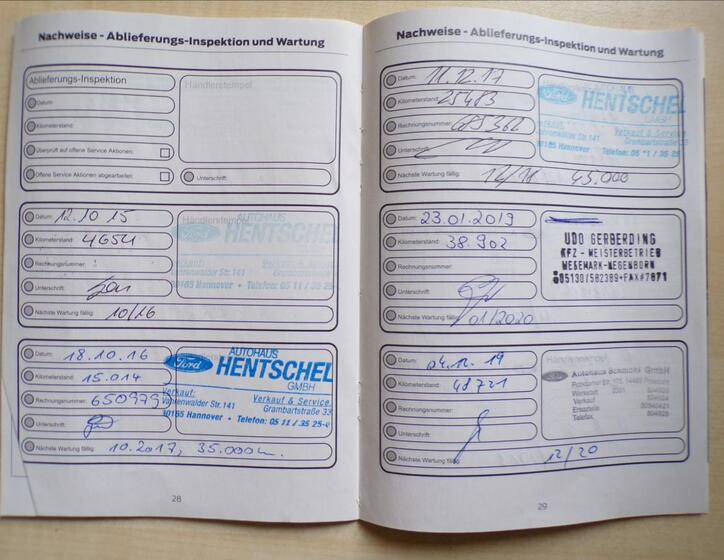 Nachweise - Ablieferungs-Inspektion und Wartung
Ablieferungs-Inspektion
Händlerstempel
Datum:
Kilometerstand:
Rechnungsnummer:
Überprüft auf offene Service Aktionen:
Offene Service Aktionen abgearbeitet:
Unterschrift:
Datum: 12.10 15
Händlerstempel
Kilometerstand: 4654
Rechnungsnummer:
Unterschrift:
Nächste Wartung fällig: 10/16
Ford
AUTOHAUS
HENTSCHEL
GMBH
Verkauf:
Vahrenwalder Str. 141
Verkauf & Service
Grambartstraße 33
30165 Hannover • Telefon: 05 11 / 35 25
Datum: 18.10.16
Kilometerstand: 15.014
Rechnungsnummer: 650979
Unterschrift:
Nächste Wartung fällig: 10.2017, 35.000
Ford
AUTOHAUS
HENTSCHEL
GMBH
Verkauf:
Vahrenwalder Str. 141
Verkauf & Service
Grambartstraße 33
30165 Hannover • Telefon: 05 11 / 35 25-
28
Nachweise - Ablieferungs-Inspektion und Wartung
Datum: 11.12.17
Kilometerstand: 25483
Rechnungsnummer: 685362
Unterschrift:
Nächste Wartung fällig: 12/18 45.000
Ford
HENTSCHEL
GMBH
Verkauf:
Vahrenwalder Str. 141
Verkauf & Service
Grambartstraße 33
30165 Hannover • Telefon: 05 11 / 35 25
Datum: 23.01.2019
Kilometerstand: 38.902
Rechnungsnummer:
Unterschrift:
Nächste Wartung fällig: 01/2020
UDO GERBERDING
KFZ - MEISTERBETRIEB
WEDEMARK-NEGENBORN
05130/582389+FAX#7871
Datum: 04.12.19
Händlerstempel
Kilometerstand: 48721
Rechnungsnummer:
Unterschrift:
Nächste Wartung fällig: 12/20
Ford
Autohaus
GmbH
Werkstatt
Verkauf
Ersatzteile
Telefax
29